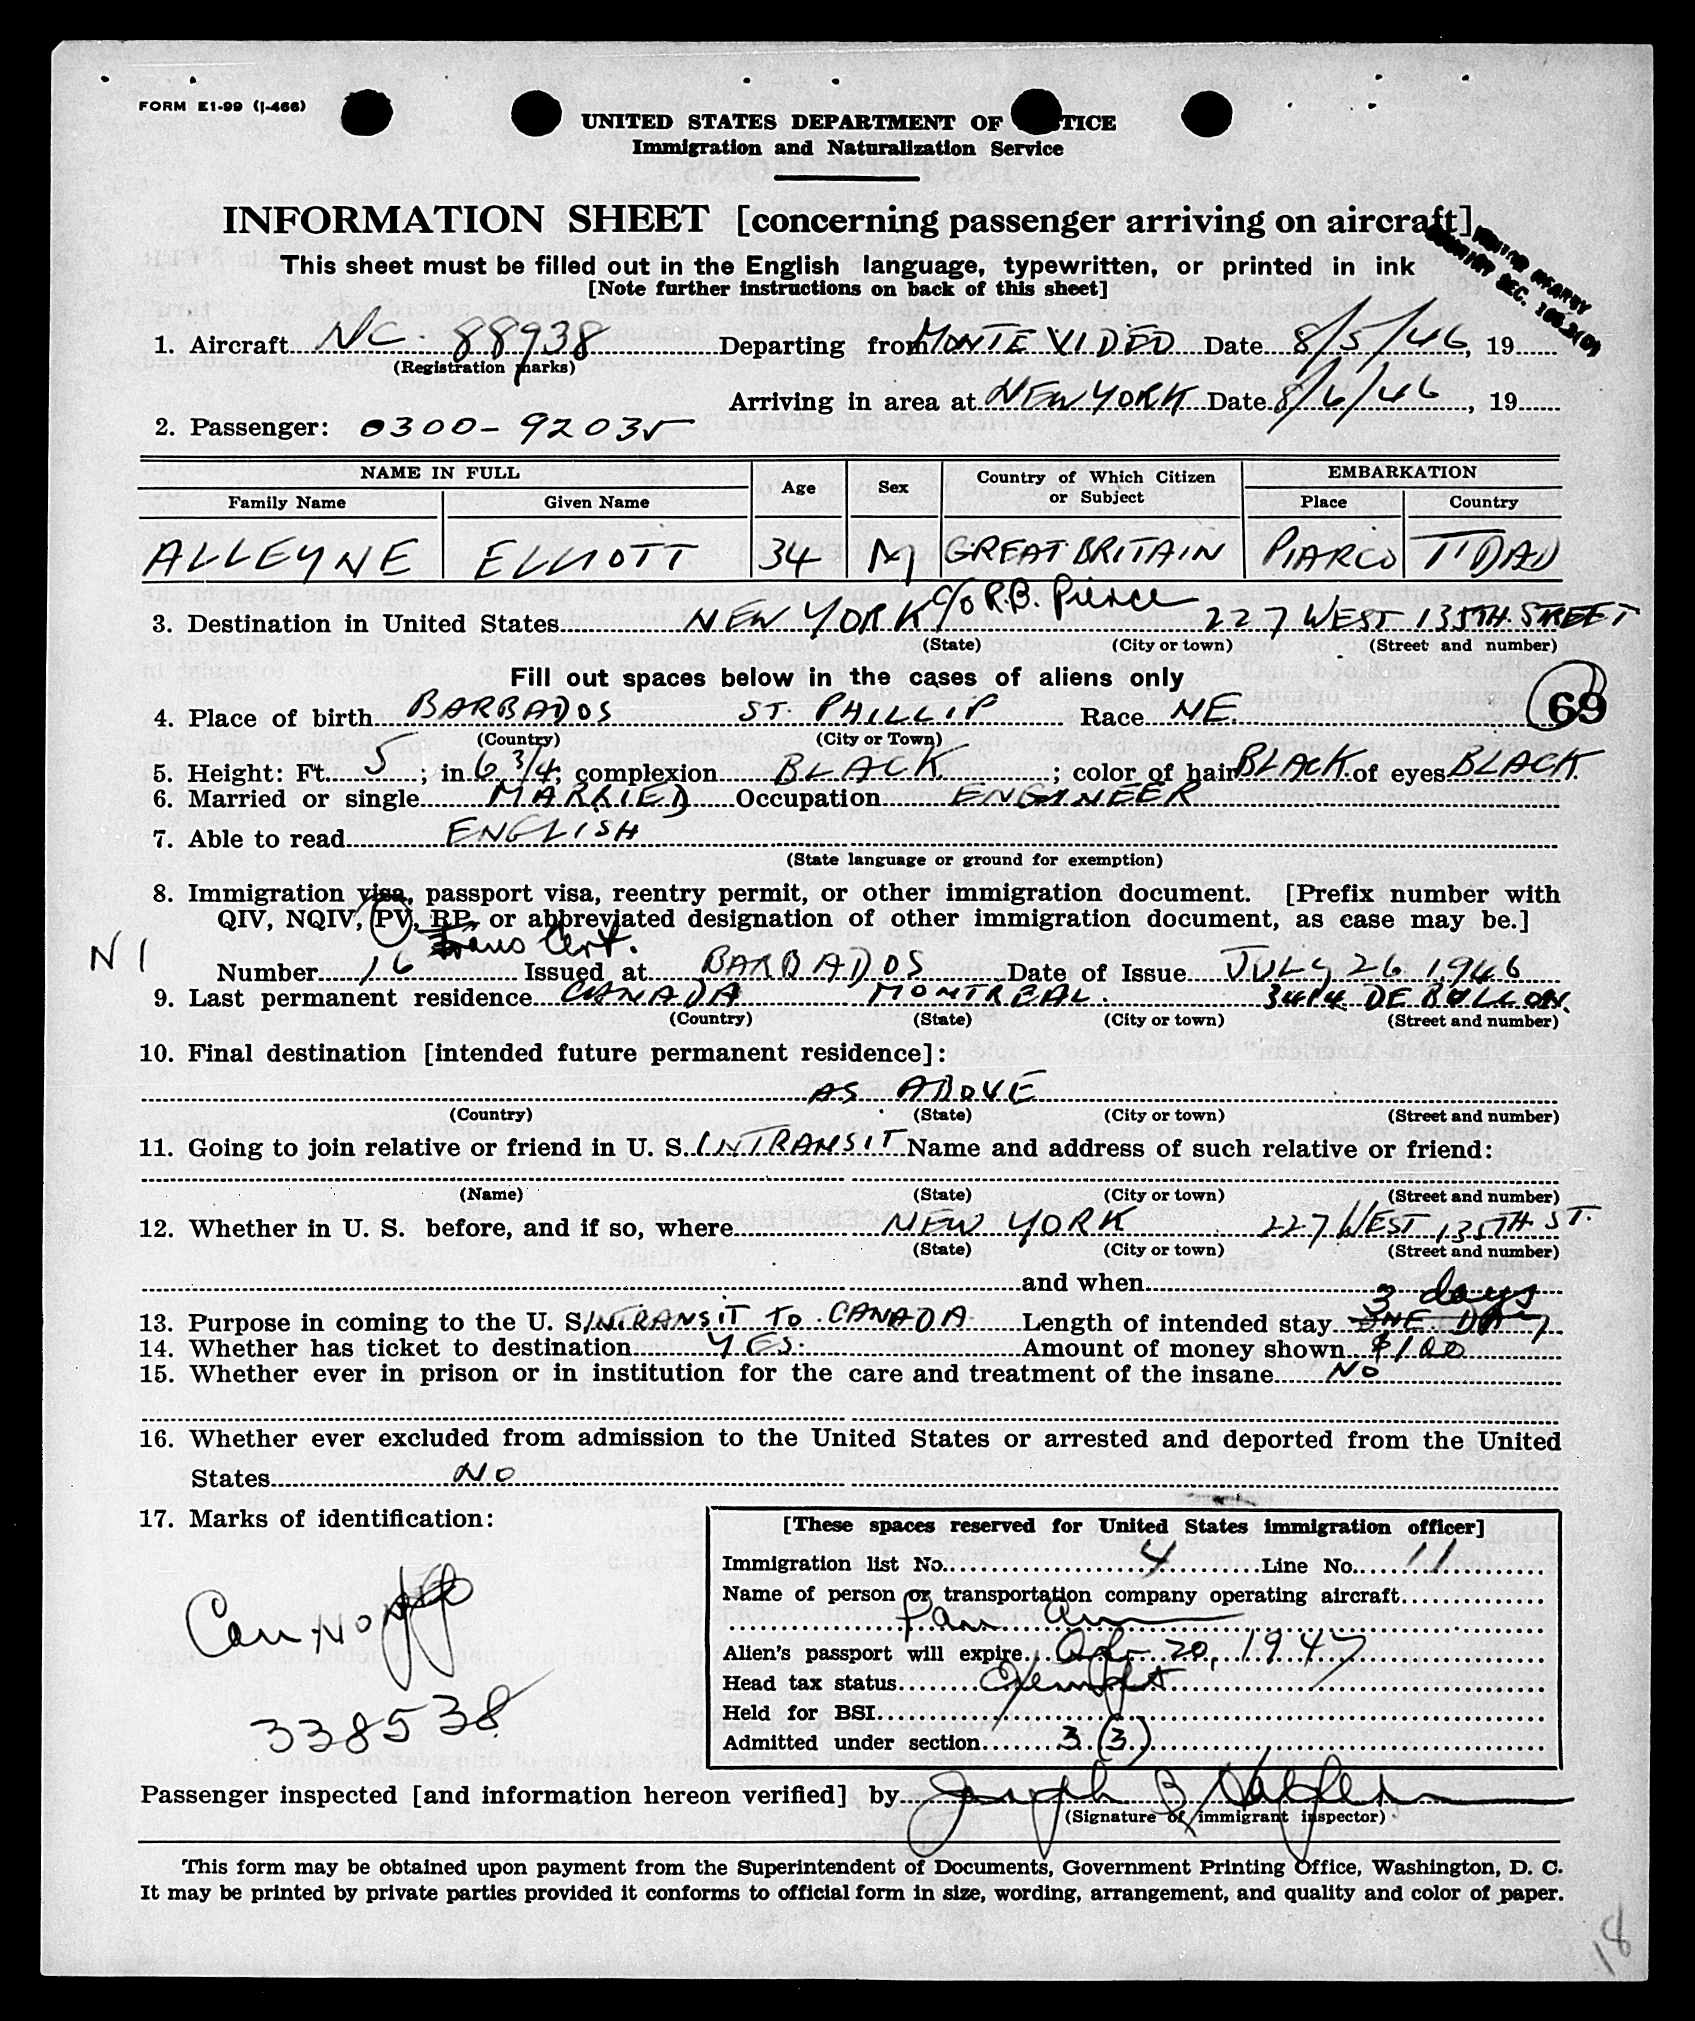 FORM E1-99 (I-466)
UNITED STATES DEPARTMENT OF TICE
Immigration and Naturalization Service
INFORMATION SHEET [concerning passenger arriving on aircraft]
This sheet must be filled out in the English language, typewritten, or printed in ink
[Note further instructions on back of this sheet]
1. Aircraft NC. 88938 Departing from MONTE VIDEO Date 8/5/46, 19
(Registration marks)
Arriving in area at NEW YORK Date 8/6/46, 19
2. Passenger: 0300-92035
NAME IN FULL Age Sex Country of Which Citizen or Subject EMBARKATION
Family Name Given Name Place Country
ALLEYNE ELLIOTT 34 M GREAT BRITAIN PIARCO T'DAD
3. Destination in United States NEW YORK c/o R.B. Pierce 227 WEST 135TH. STREET
(State) (City or town) (Street and number)
Fill out spaces below in the cases of aliens only
69
4. Place of birth BARBADOS ST. PHILLIP Race NE.
(Country) (City or Town)
5. Height: Ft. 5; in. 6 3/4; complexion BLACK; color of hair BLACK of eyes BLACK
6. Married or single MARRIED Occupation ENGINEER
7. Able to read ENGLISH
(State language or ground for exemption)
8. Immigration visa, passport visa, reentry permit, or other immigration document. [Prefix number with
QIV, NQIV, PV, RP, or abbreviated designation of other immigration document, as case may be.]
Trans Cert.
N 1
Number 16 Issued at BARBADOS Date of Issue JULY 26 1946
9. Last permanent residence CANADA MONTREAL. 3414 DE BULLON.
(Country) (State) (City or town) (Street and number)
10. Final destination [intended future permanent residence]:
AS ABOVE
(Country) (State) (City or town) (Street and number)
11. Going to join relative or friend in U. S. INTRANSIT Name and address of such relative or friend:
(Name) (State) (City or town) (Street and number)
12. Whether in U. S. before, and if so, where NEW YORK 227 WEST 135TH ST.
(State) (City or town) (Street and number)
and when
3 days
13. Purpose in coming to the U. S. INTRANSIT TO CANADA Length of intended stay ONE DAY
14. Whether has ticket to destination YES. Amount of money shown $100
15. Whether ever in prison or in institution for the care and treatment of the insane NO
16. Whether ever excluded from admission to the United States or arrested and deported from the United
States NO
17. Marks of identification:
[These spaces reserved for United States immigration officer]
Immigration list No. 4 Line No. 11
Name of person or transportation company operating aircraft
Pan Am
Alien's passport will expire 20, 1947
Head tax status Exempt
Held for BSI
Admitted under section 3 (3)
Can. No
338538
Passenger inspected [and information hereon verified] by Joseph B
(Signature of immigrant inspector)
This form may be obtained upon payment from the Superintendent of Documents, Government Printing Office, Washington, D. C.
It may be printed by private parties provided it conforms to official form in size, wording, arrangement, and quality and color of paper.
18